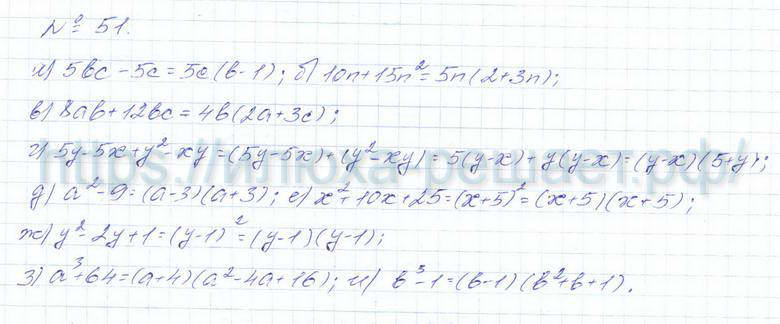 № 51.
а) 5bc - 5c = 5c(b-1); б) 10n + 15n² = 5n(2+3n);
в) 8ab + 12bc = 4b(2a+3c);
г) 5y - 5x + y² - xy = (5y - 5x) + (y² - xy) = 5(y-x) + y(y-x) = (y-x)(5+y);
д) a² - 9 = (a-3)(a+3); е) x² + 10x + 25 = (x+5)² = (x+5)(x+5);
ж) y² - 2y + 1 = (y-1)² = (y-1)(y-1);
з) a³ + 64 = (a+4)(a² - 4a + 16); и) b³ - 1 = (b-1)(b² + b + 1).
https://илюха-решает.рф/